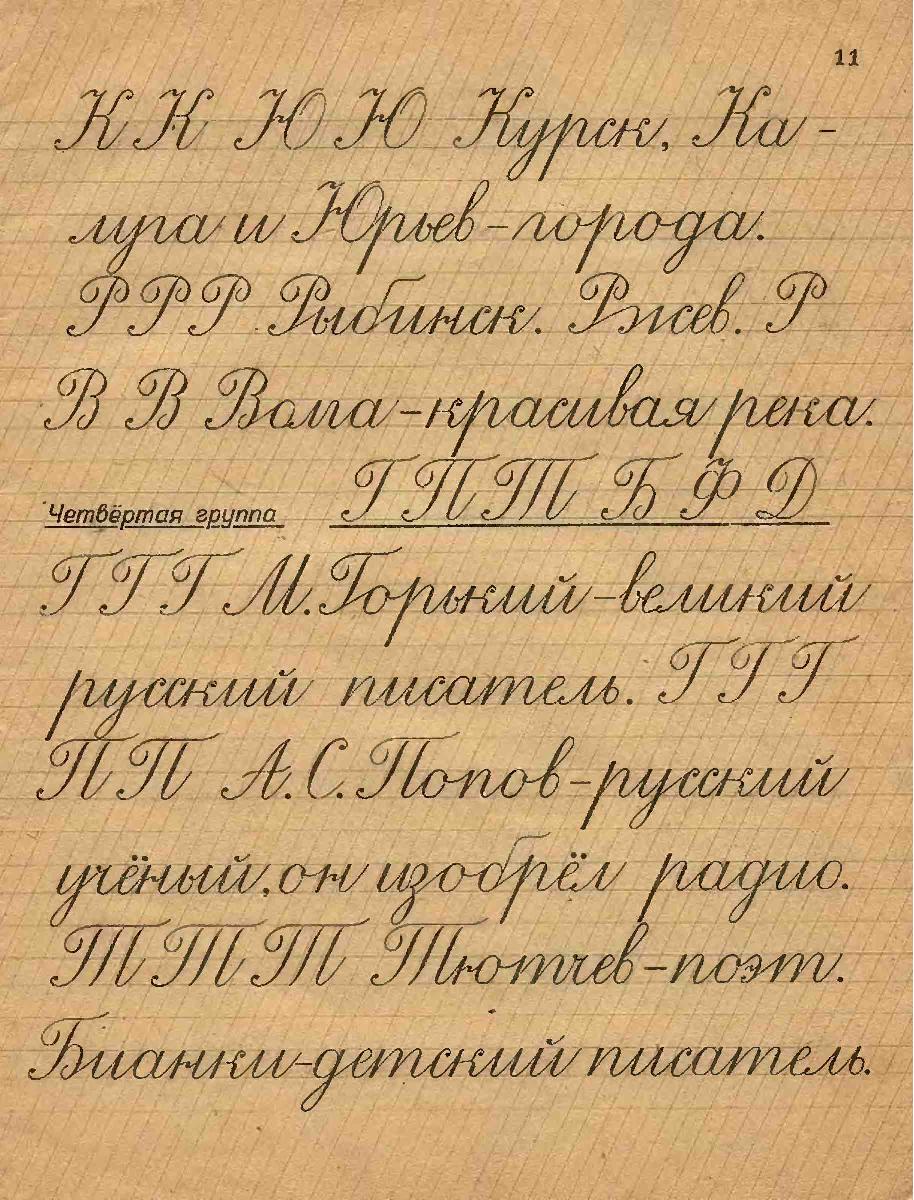 11
К К Ю Ю Курск, Ка-
луга и Юрьев - города.
Р Р Р Рыбинск. Ржев. Р
В В Волга - красивая река.
Четвёртая группа Г П Т Б Ф Д
Г Г Г М. Горький - великий
русский писатель. Г Г Г
П П А. С. Попов - русский
учёный, он изобрёл радио.
Т Т Т Тютчев - поэт.
Бианки - детский писатель.